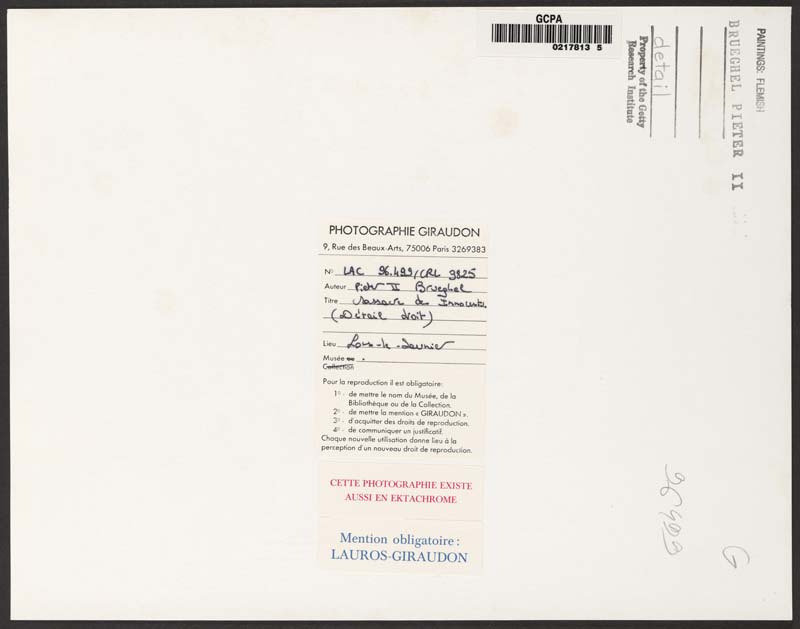 GCPA
0217813 5
PAINTINGS: FLEMISH
BRUEGHEL PIETER II
detail
Property of the Getty
Research Institute
PHOTOGRAPHIE GIRAUDON
9, Rue des Beaux-Arts, 75006 Paris 3269383
N° LAC 96.493/CRL 9825
Auteur Pieter II Brueghel
Titre Massacre des Innocents
(Détail droit)
Lieu Lons-le-Saunier
Musée ou .
Collection
Pour la reproduction il est obligatoire:
1° - de mettre le nom du Musée, de la
Bibliothèque ou de la Collection.
2° - de mettre la mention « GIRAUDON ».
3° - d'acquitter des droits de reproduction.
4° - de communiquer un justificatif.
Chaque nouvelle utilisation donne lieu à la
perception d'un nouveau droit de reproduction.
CETTE PHOTOGRAPHIE EXISTE
AUSSI EN EKTACHROME
Mention obligatoire :
LAUROS-GIRAUDON
96493
G